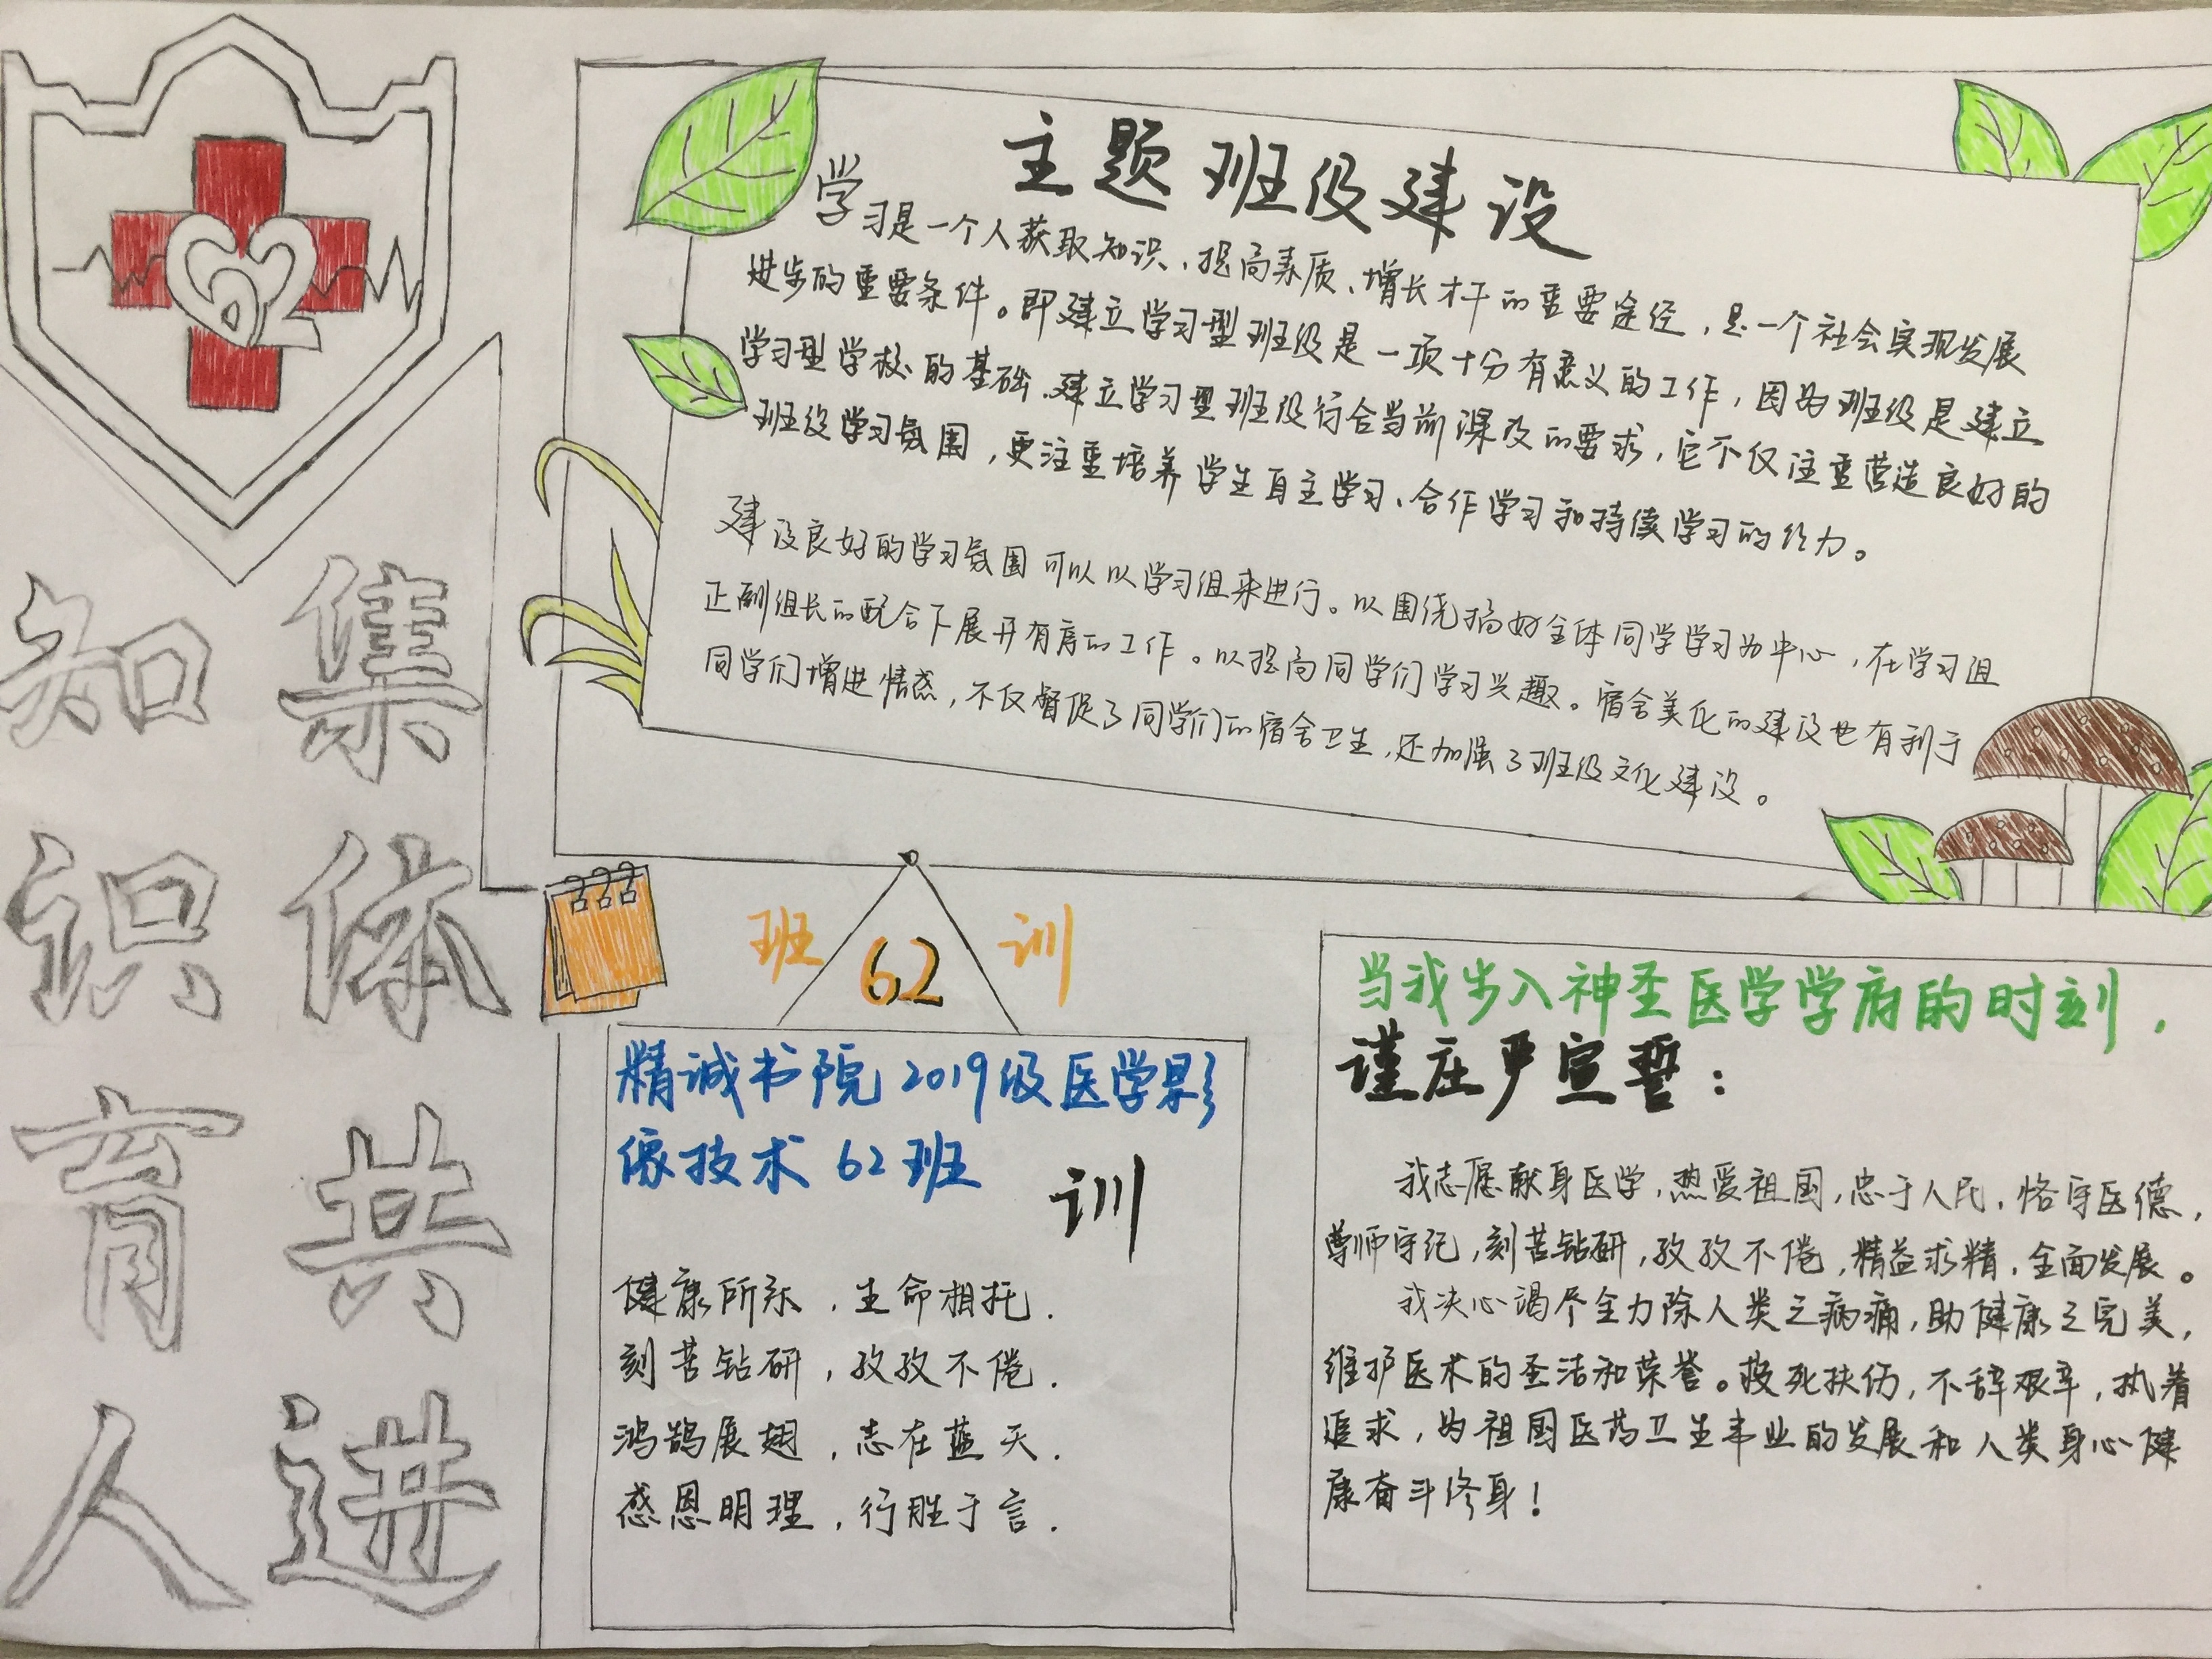 62
知识育人
集体共进
主题班级建设
学习是一个人获取知识、提高素质、增长才干的重要途径，是一个社会实现发展
进步的重要条件。即建立学习型班级是一项十分有意义的工作，因为班级是建立
学习型学校的基础.建立学习型班级符合当前课改的要求，它不仅注重营造良好的
班级学习氛围，更注重培养学生自主学习、合作学习和持续学习的能力。
建设良好的学习氛围可以以学习组来进行。以围绕搞好全体同学学习为中心，在学习组
正副组长的配合下展开有序的工作。以提高同学们学习兴趣。宿舍美化的建设也有利于
同学们增进情感，不仅督促了同学们的宿舍卫生，还加强了班级文化建设。
班 62 训
精诚书院2019级医学影
像技术62班
训
健康所系，生命相托.
刻苦钻研，孜孜不倦.
鸿鹄展翅，志在蓝天.
感恩明理，行胜于言.
当我步入神圣医学学府的时刻，
谨庄严宣誓：
我志愿献身医学，热爱祖国，忠于人民，恪守医德，
尊师守纪，刻苦钻研，孜孜不倦，精益求精，全面发展。
我决心竭尽全力除人类之病痛，助健康之完美，
维护医术的圣洁和荣誉。救死扶伤，不辞艰辛，执着
追求，为祖国医药卫生事业的发展和人类身心健
康奋斗终身！